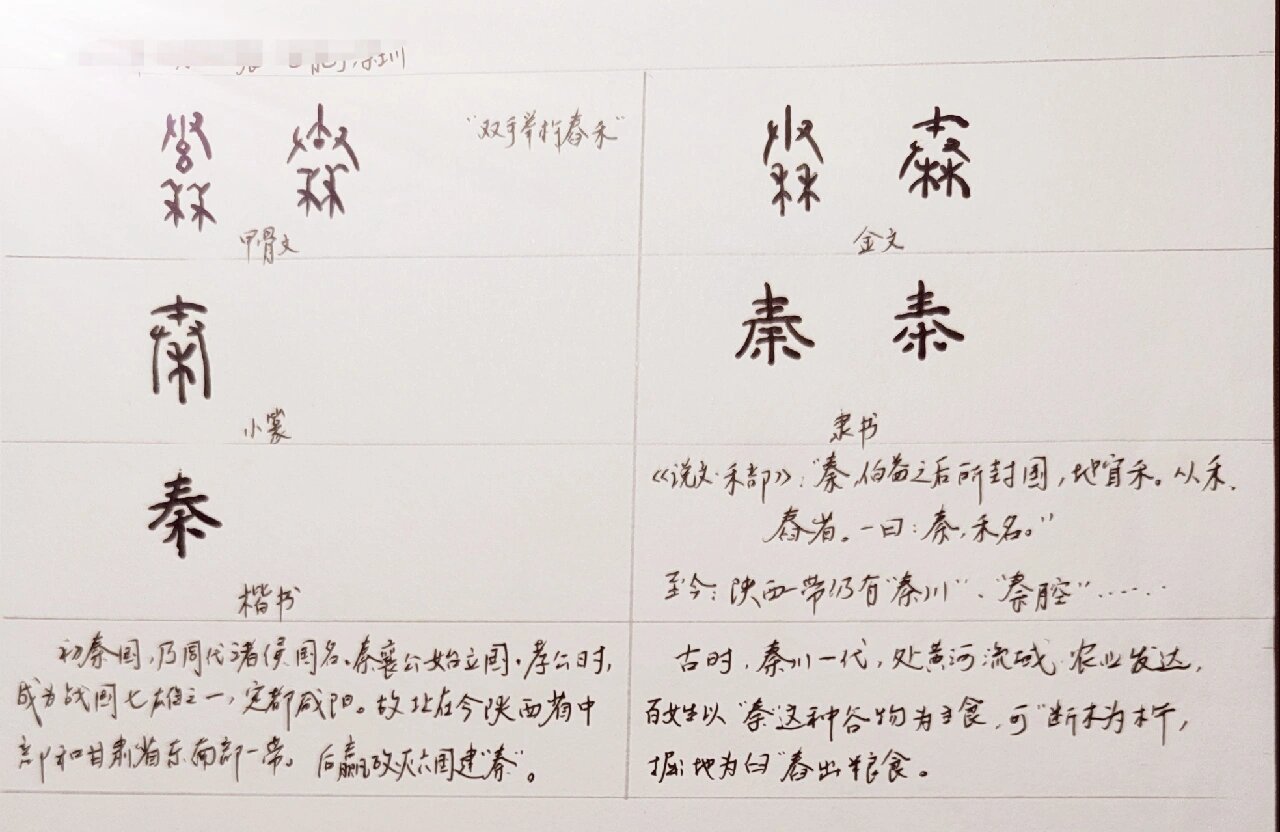 "双手举杵舂禾"
甲骨文
金文
秦
小篆
秦 秦
隶书
秦
楷书
《说文·禾部》:"秦,伯益之后所封国,地宜禾。从禾,
舂省。一曰:秦,禾名。"
至今:陕西一带仍有"秦川"、"秦腔"……
初秦国,乃周代诸侯国名。秦襄公始立国。孝公时,
成为战国七雄之一,定都咸阳。故址在今陕西省中
部和甘肃省东南部一带。后嬴政灭六国建"秦"。
古时,秦川一代,处黄河流域,农业发达,
百姓以"秦"这种谷物为主食,可"断木为杵,
掘地为臼"舂出粮食。